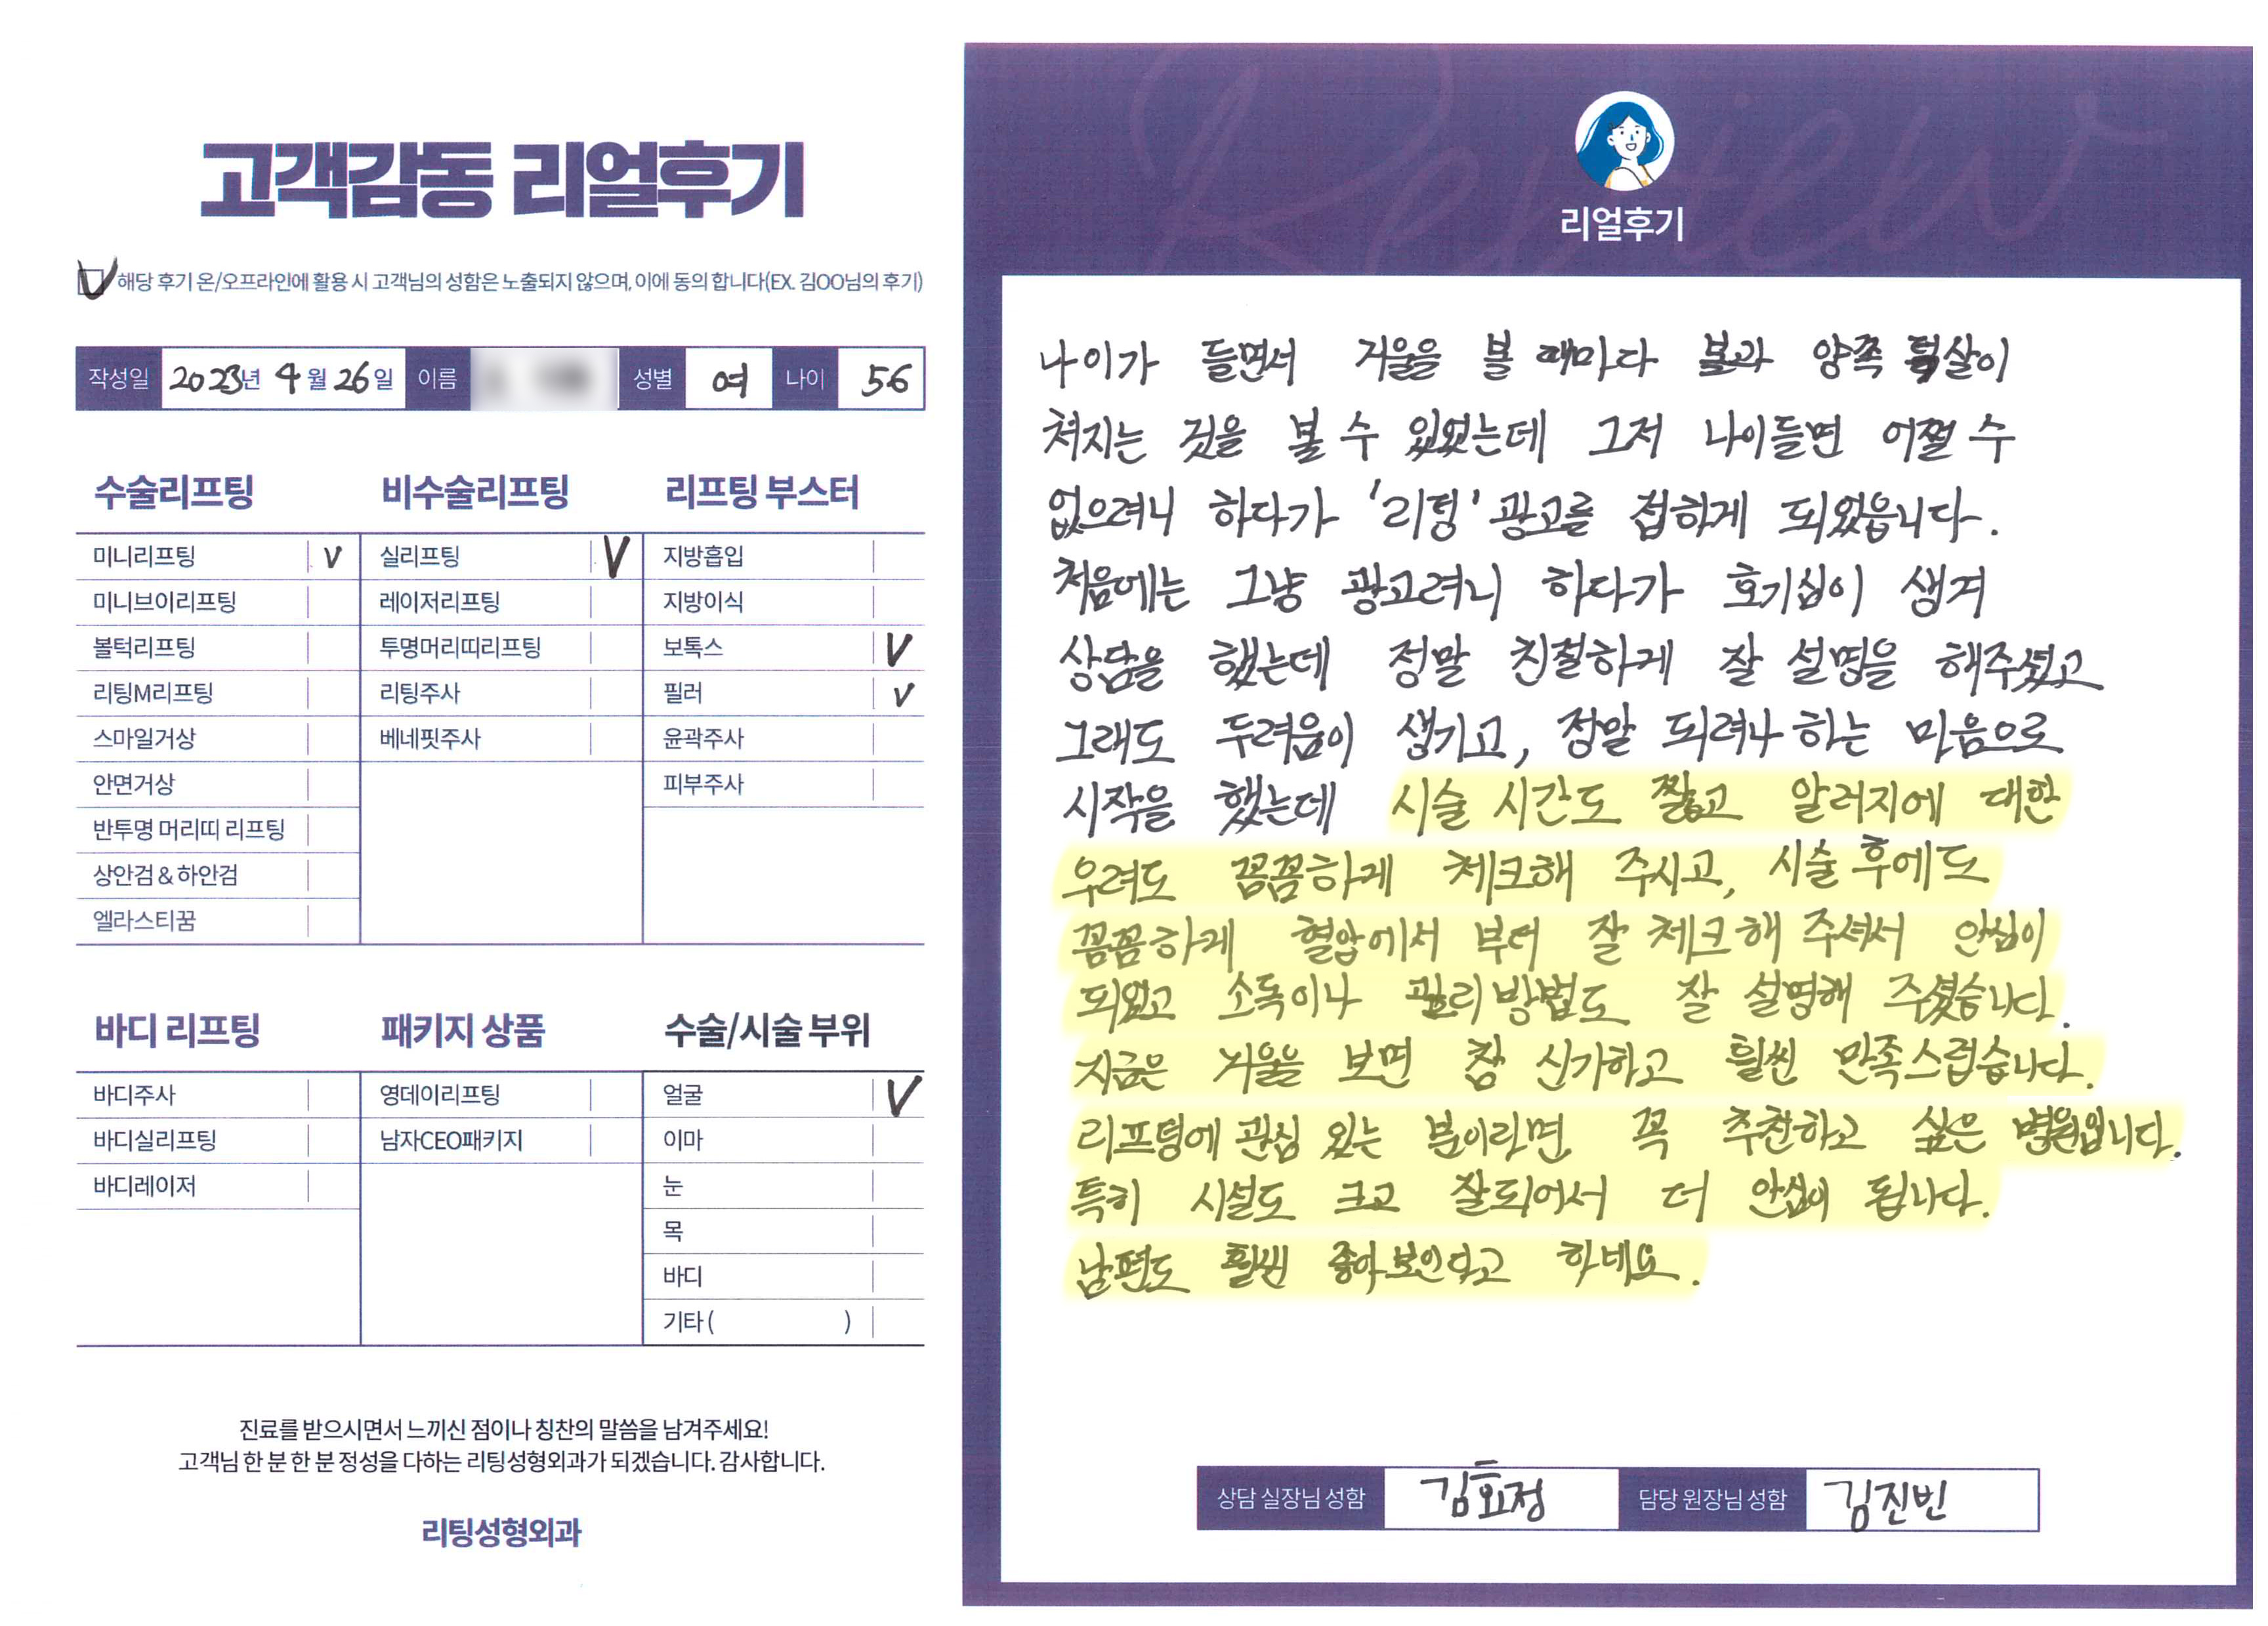 고객감동 리얼후기
해당 후기 온/오프라인에 활용 시 고객님의 성함은 노출되지 않으며, 이에 동의 합니다(EX. 김OO님의 후기)
작성일 2023년 4월 26일 이름 성별 여 나이 56
수술리프팅
미니리프팅 V
미니브이리프팅
볼턱리프팅
리팅M리프팅
스마일거상
안면거상
반투명 머리띠 리프팅
상안검 & 하안검
엘라스티꿈
비수술리프팅
실리프팅 V
레이저리프팅
투명머리띠리프팅
리팅주사
베네핏주사
리프팅 부스터
지방흡입
지방이식
보톡스 V
필러 V
윤곽주사
피부주사
바디 리프팅
바디주사
바디실리프팅
바디레이저
패키지 상품
영데이리프팅
남자CEO패키지
수술/시술 부위
얼굴 V
이마
눈
목
바디
기타 ( )
진료를 받으시면서 느끼신 점이나 칭찬의 말씀을 남겨주세요!
고객님 한 분 한 분 정성을 다하는 리팅성형외과가 되겠습니다. 감사합니다.
리팅성형외과
Review
리얼후기
나이가 들면서 거울을 볼 때마다 볼과 양쪽 턱살이
쳐지는 것을 볼 수 있었는데 그저 나이들면 어쩔 수
없으려니 하다가 '리팅' 광고를 접하게 되었읍니다.
처음에는 그냥 광고려니 하다가 호기심이 생겨
상담을 했는데 정말 친절하게 잘 설명을 해주셨고
그래도 두려움이 생기고, 정말 되려나 하는 마음으로
시작을 했는데 시술 시간도 짧고 알러지에 대한
우려도 꼼꼼하게 체크해 주시고, 시술 후에도
꼼꼼하게 혈압에서 부터 잘 체크해 주셔서 안심이
되었고 소독이나 관리방법도 잘 설명해 주셨습니다.
지금은 거울을 보면 참 신기하고 훨씬 만족스럽습니다.
리프팅에 관심 있는 분이라면 꼭 추천하고 싶은 병원입니다.
특히 시설도 크고 잘되어서 더 안심이 됩니다.
남편도 훨씬 좋아보인다고 하네요.
상담 실장님 성함 김효정 담당 원장님 성함 김진빈